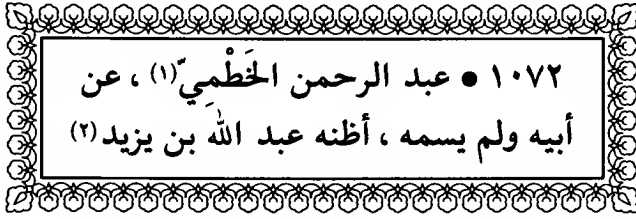 ١٠٧٢ • عبد الرحمن الخَطْمِيّ(١) ، عن
أبيه ولم يسمه ، أظنه عبد الله بن يزيد(٢)